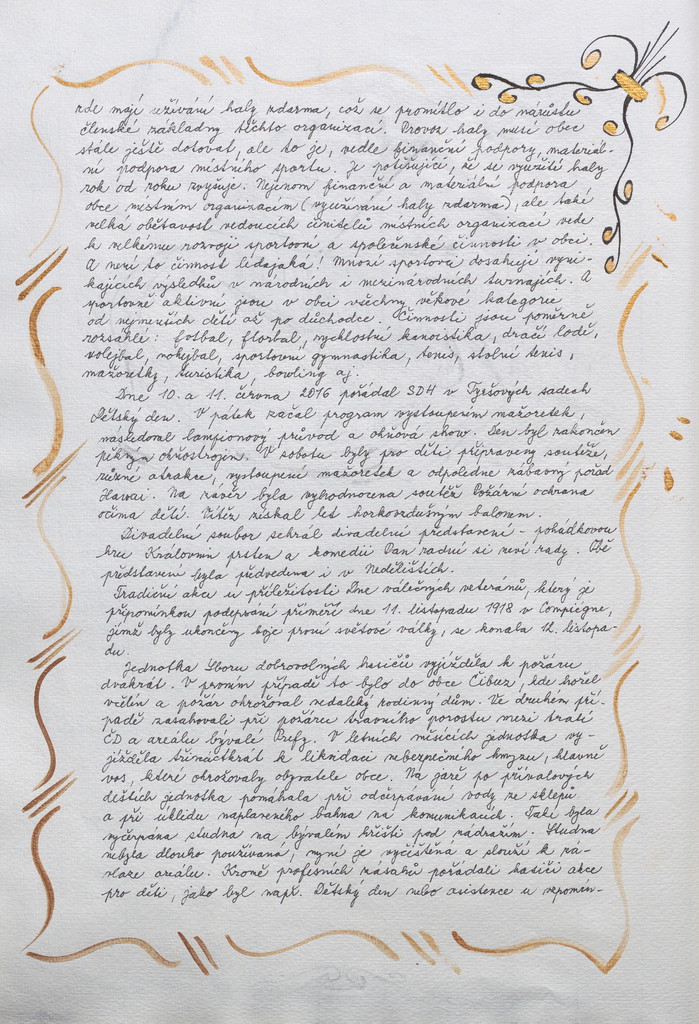 zde mají užívání haly zdarma, což se promítlo i do nárůstu
členské základny těchto organizací. Provoz haly musí obec
stále ještě dotovat, ale to je, vedle finanční podpory, materiál-
ní podpora místního sportu. Je potěšující, že se využití haly
rok od roku zvyšuje. Nejenom finanční a materiální podpora
obce místním organizacím (využívání haly zdarma), ale také
velká obětavost vedoucích činitelů místních organizací vede
k velkému rozvoji sportovní a společenské činnosti v obci.
A není to činnost ledajaká! Mnozí sportovci dosahují vyni-
kajících výsledků v národních i mezinárodních turnajích. A
sportovně aktivní jsou v obci všechny věkové kategorie
od nejmenších dětí až po důchodce. Činnosti jsou poměrně
rozsáhlé: fotbal, florbal, rychlostní kanoistika, dračí lodě,
volejbal, nohejbal, sportovní gymnastika, tenis, stolní tenis,
mažoretky, turistika, bowling aj.
Dne 10. a 11. června 2016 pořádal SDH v Tyršových sadech
Dětský den. V pátek začal program vystoupením mažoretek,
následoval lampionový průvod a ohňová show. Den byl zakončen
pěkným ohňostrojem. V sobotu byly pro děti připraveny soutěže,
různé atrakce, vystoupení mažoretek a odpoledne zábavný pořad
Hawai. Na závěr byla vyhodnocena soutěž Požární ochrana
očima dětí. Vítěz získal let horkovzdušným balonem.
Divadelní soubor sehrál divadelní představení - pohádkovou
hru Královnin prsten a komedii Pan radní si neví rady. Obě
představení byla předvedena i v Nedělištích.
Tradiční akce u příležitosti Dne válečných veteránů, který je
připomínkou podepsání příměří dne 11. listopadu 1918 v Compiégne,
jímž byly ukončeny boje první světové války, se konala 12. listopa-
du.
Jednotka Sboru dobrovolných hasičů vyjížděla k požáru
dvakrát. V prvním případě to bylo do obce Čibuz, kde hořel
včelín a požár ohrožoval nedaleký rodinný dům. Ve druhém pří-
padě zasahovali při požáru travního porostu mezi tratí
ČD a areálu bývalé Prefy. V letních měsících jednotka vy-
jížděla třináctkrát k likvidaci nebezpečného hmyzu, hlavně
vos, které ohrožovaly obyvatele obce. Na jaře po přívalových
deštích jednotka pomáhala při odčerpávání vody ze sklepů
a při úklidu naplaveného bahna na komunikacích. Také byla
vyčerpána studna na bývalém hřišti pod nádražím. Studna
nebyla dlouho používaná, nyní je vyčištěná a slouží k zá-
vlaze areálu. Kromě profesních zásahů pořádali hasiči akce
pro děti, jako byl např. Dětský den nebo asistence u vzpomín-